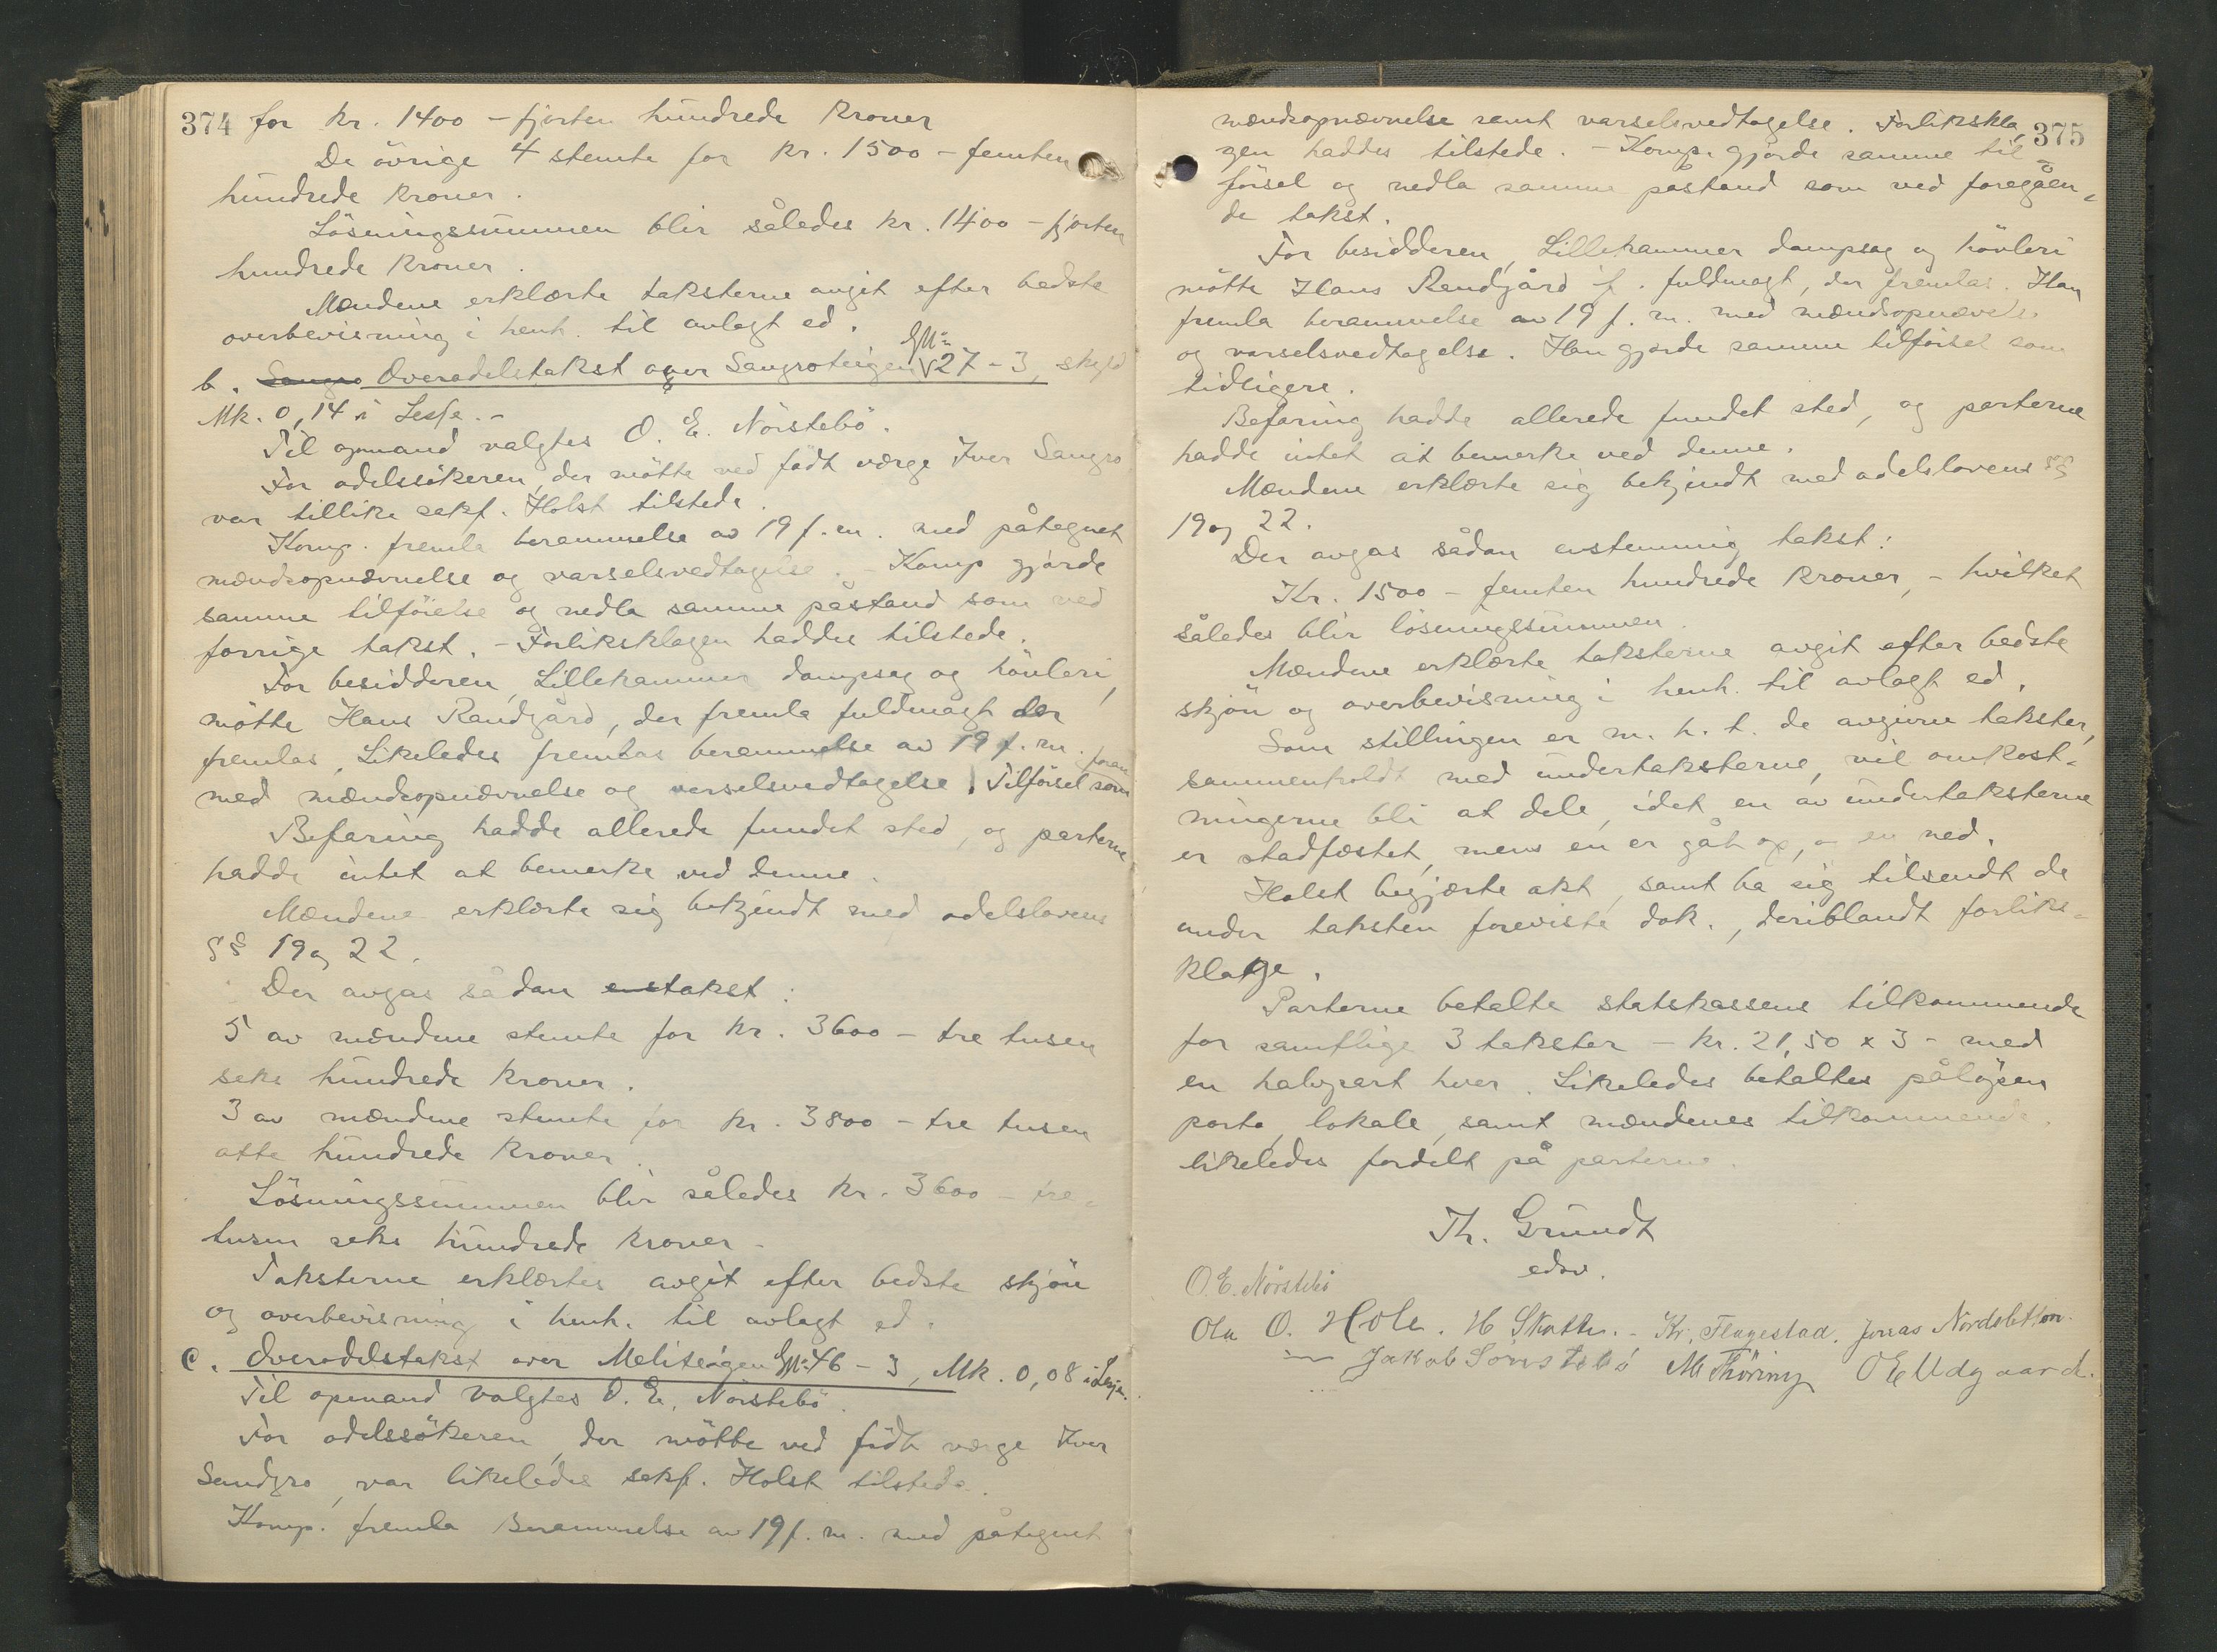 374 for kr. 1400 - fjorten hundrede kroner
De övrige 4 stemte for kr. 1500 - femten
hundrede kroner.
Lösningssummen blir således kr. 1400 - fjorten
hundrede kroner.
Mændene erklærte taksterne avgit efter bedste
overbevisning i henh. til avlagt ed.
b. Sangro Overodelstakst over Sangroteigen GNo 27-3, skyld
Mk. 0,14 i Lesje. -
Til opmand valgtes O. E. Nörstebö.
For odelssökeren, der mötte ved födt værge Iver Sangro
var tillike sakf. Holst tilstede.
Komp. fremla berammelse av 19 f. m. med påtegnet
mændsopnævnelse og varselsvedtagelse. - Komp gjorde
samme tilförelse og nedla samme påstand som ved
forrige takst. - Forliksklagen haddes tilstede.
For besidderen, Lillehammer dampsag og hövleri,
mötte Hans Randgård, der fremla fuldmagt der
fremlas. Likeledes fremlas berammelse av 19 f. m.
med mændsopnævnelse og varselsvedtagelse. Tilförsel som foran
Befaring hadde allerede fundet sted, og parterne
hadde intet at bemerke ved denne.
Mændene erklærte sig bekjendt med odelslovens
§§ 19 og 22.
Der avgas sådan enstakst:
5 av mændene stemte for kr. 3600 - tre tusen
seks hundrede kroner.
3 av mændene stemte for kr. 3800 - tre tusen
otte hundrede kroner.
Lösningssummen blir således kr. 3600 - tre-
tusen seks hundrede kroner -
Taksterne erklærtes avgit efter bedste skjön
og overbevisning i henh. til avlagt ed.
C. Overodelstakst over Meliteigen GNo 46-3, Mk. 0,08 i Lesje.
Til opmand valgtes O. E. Nörstebö.
For odelssökeren, der mötte ved födt værge Iver
Sandgro, var likeledes sakf. Holst tilstede.
Komp. fremla Berammelse av 19 f. m. med påtegnet
375
mændsopnævnelse samt varselsvedtagelse. Forlikskla-
gen haddes tilstede. - Komp. gjorde samme til-
försel og nedla samme påstand som ved foregåen-
de takst.
For besidderen, Lillehammer dampsag og hövleri
mötte Hans Randgård if. fuldmagt, der fremlas. Han
fremla berammelse av 19 f. m. med mændsopnævnelse
og varselsvedtagelse. Han gjorde samme tilförsel som
tidligere.
Befaring hadde allerede fundet sted, og parterne
hadde intet at bemerke ved denne.
Mændene erklærte sig bekjendt med odelslovens §§
19 og 22.
Der avgas sådan enstemmig takst:
Kr. 1500 - femten hundrede kroner, - hvilket
således blir lösningssummen.
Mændene erklærte taksterne avgit efter bedste
skjön og overbevisning i henh. til avlagt ed.
Som stillingen er m. h. t. de avgivne takster,
sammenholdt med undertaksterne, vil omkost-
ningerne bli at dele, idet en av undertaksterne
er stadfæstet, mens en er gåt op, og en ned.
Holst begjærte akt, samt ba sig tilsendt de
under taksten foreviste dok., deriblandt forliks-
klage.
Parterne betalte statskassens tilkommende
for samtlige 3 takster - kr. 21,50 x 3 - med
en halvpart hver. Likeledes betaltes påløpen
porto, lokale, samt mændenes tilkommende,
likeledes fordelt på parterne.
Th. Grundt
edsv.
O. E. Nörstebö
Ola O. Hole. H Skotte. - Kr. Flagestad. Jonas Nordsletten
Jakob Sönstebö M Thöring O E Udgaard.